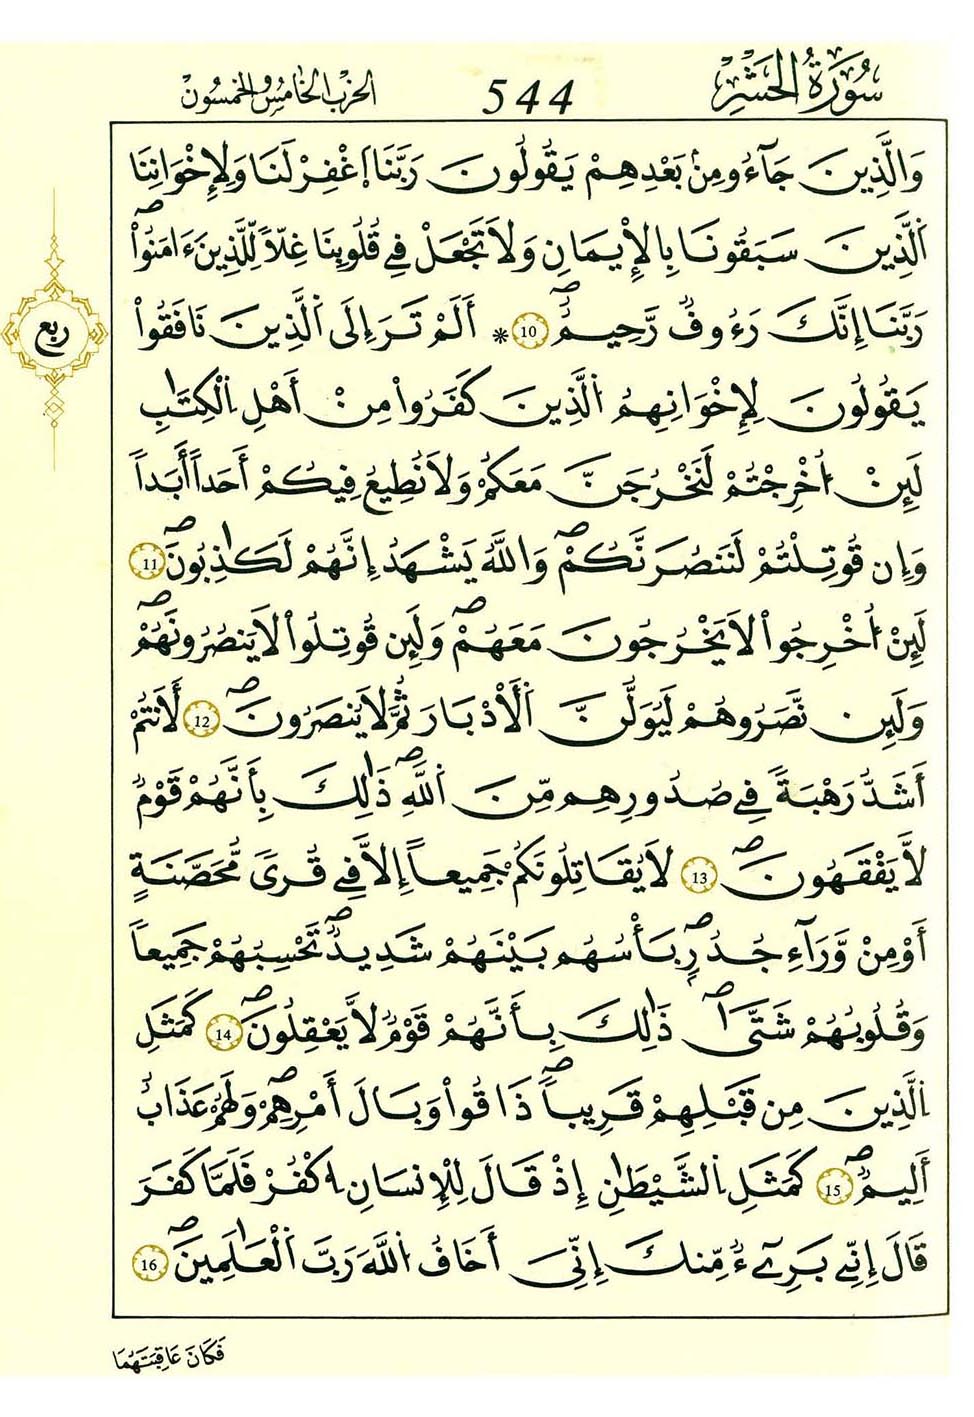 سُورَةُ الْحَشْرِ
544
الحزب الخامس والخمسون
وَالَّذِينَ جَآءُو مِنۢ بَعْدِهِمْ يَقُولُونَ رَبَّنَا اَغْفِرْ لَنَا وَلِإِخْوَانِنَا
اَلَّذِينَ سَبَقُونَا بِالْإِيمَانِ وَلَا تَجْعَلْ فِي قُلُوبِنَا غِلّاً لِّلَّذِينَ ءَامَنُواْۖ
رَبَّنَا إِنَّكَ رَءُوفٌ رَّحِيمٌۖ 10 * أَلَمْ تَرَ إِلَى اَلَّذِينَ نَافَقُواْ
يَقُولُونَ لِإِخْوَانِهِمُ اُلَّذِينَ كَفَرُواْ مِنْ أَهْلِ اِلْكِتَٰبِ
لَئِنْ أُخْرِجْتُمْ لَنَخْرُجَنَّ مَعَكُمْ وَلَا نُطِيعُ فِيكُمْ أَحَداً أَبَداً
وَإِن قُوتِلْتُمْ لَنَنصُرَنَّكُمْۖ وَاللَّهُ يَشْهَدُ إِنَّهُمْ لَكَٰذِبُونَۖ 11
لَئِنْ أُخْرِجُواْ لَا يَخْرُجُونَ مَعَهُمْۖ وَلَئِن قُوتِلُواْ لَا يَنصُرُونَهُمْۖ
وَلَئِن نَّصَرُوهُمْ لَيُوَلُّنَّ اَلْأَدْبَارَ ثُمَّ لَا يُنصَرُونَۖ 12 لَأَنتُمْ
أَشَدُّ رَهْبَةً فِي صُدُورِهِم مِّنَ اَللَّهِۖ ذَٰلِكَ بِأَنَّهُمْ قَوْمٌ
لَّا يَفْقَهُونَۖ 13 لَا يُقَاتِلُونَكُمْ جَمِيعاً إِلَّا فِي قُرىً مُّحَصَّنَةٍ
أَوْ مِنْ وَّرَآءِ جُدُرٍۖ بَأْسُهُم بَيْنَهُمْ شَدِيدٌۖ تَحْسِبُهُمْ جَمِيعاً
وَقُلُوبُهُمْ شَتَّىٰۖ ذَٰلِكَ بِأَنَّهُمْ قَوْمٌ لَّا يَعْقِلُونَۖ 14 كَمَثَلِ
اِلَّذِينَ مِن قَبْلِهِمْ قَرِيباًۖ ذَاقُواْ وَبَالَ أَمْرِهِمْۖ وَلَهُمْ عَذَابٌ
أَلِيمٌۖ 15 كَمَثَلِ اِلشَّيْطَٰنِ إِذْ قَالَ لِلْإِنسَانِ اِكْفُرْ فَلَمَّا كَفَرَ
قَالَ إِنِّي بَرِيٓءٌ مِّنكَ إِنِّيَ أَخَافُ اُللَّهَ رَبَّ اَلْعَٰلَمِينَۖ 16
ربع
فَكَانَ عَاقِبَتَهُمَا